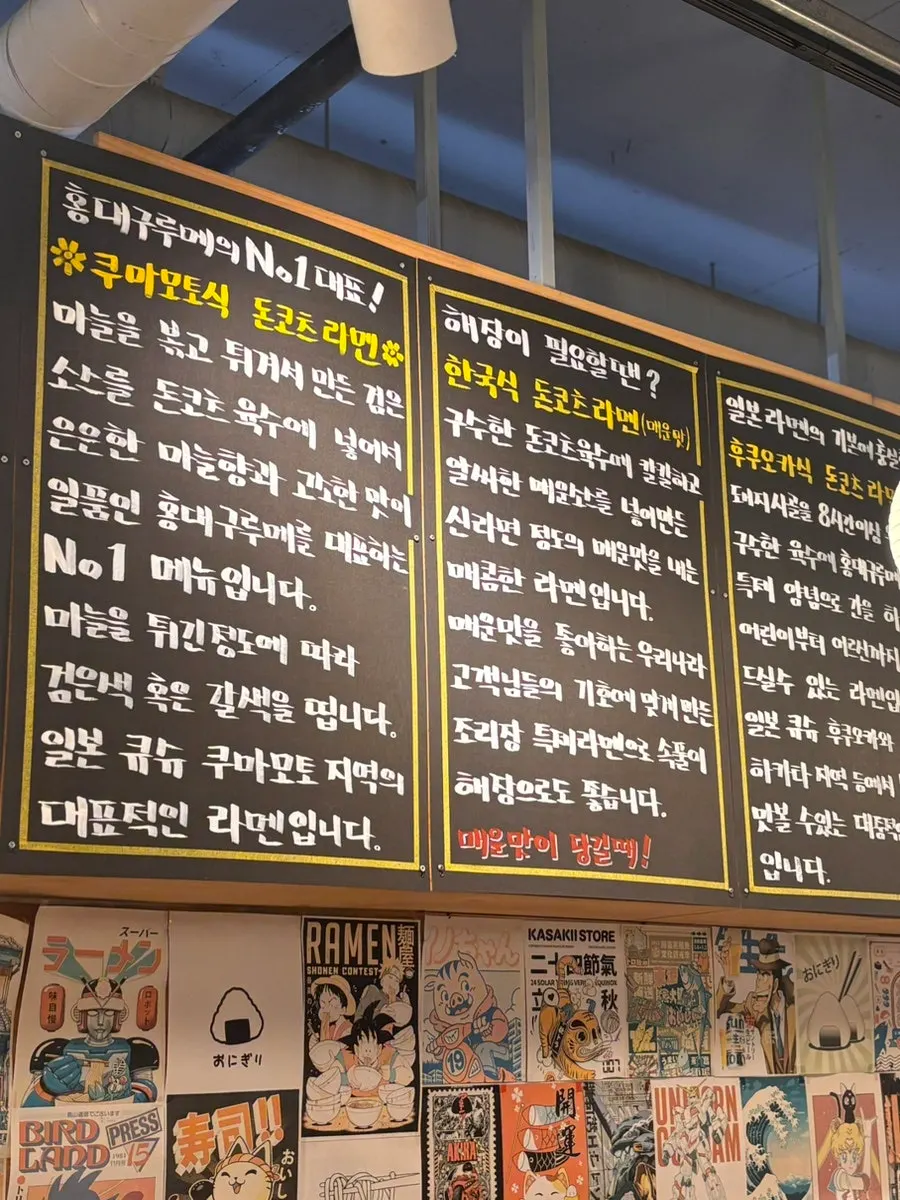 홍대구루메의 No1 대표!
쿠마모토식 돈코츠 라멘
마늘을 볶고 튀겨서 만든 검은
소스를 돈코츠 육수에 넣어서
은은한 마늘향과 고소한 맛이
일품인 홍대구루메를 대표하는
No1 메뉴입니다.
마늘을 튀긴정도에 따라
검은색 혹은 갈색을 띱니다.
일본 큐슈 쿠마모토 지역의
대표적인 라멘입니다.
해장이 필요할땐?
한국식 돈코츠라멘(매운맛)
구수한 돈코츠육수에 칼칼하고
알싸한 매운소스를 넣어만든
신라면 정도의 매운맛을 내는
매콤한 라멘입니다.
매운맛을 좋아하는 우리나라
고객님들의 기호에 맞게 만든
조리장 특제라멘으로 속풀이
해장으로도 좋습니다.
매운맛이 당길때!
일본라멘의 기본에
후쿠오카식 돈코츠
돼지사골을 8시간이상
구수한 육수에 홍대구루메
특제 양념으로 간을
어린이부터 어르신까지
드실수 있는
일본 큐슈 후쿠오카와
하카타 지역 등에서
맛볼 수있는
입니다.
スーパー
ラーメン
味自慢
ロボット
おにぎり
RAMEN
SHONEN CONTEST
麺屋
KASAKII STORE
二十四節氣
立秋
おにぎり
BIRD
LAND
PRESS
15
寿司!!
おいし
19
AKIRA
開運